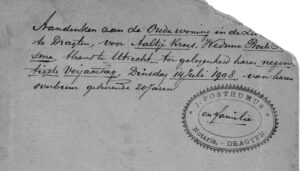 Aandenken aan de Oude woning in de
te Dragten, voor Aaltje Kroes, Weduwe
sma, thans te Utrecht, ter gelegenheid harer negen-
tigste Verjaardag, Dinsdag 14 Juli 1908, van haren
gedurende 20 jaren
J. POSTHUMUS
en familie
Notaris. DRAGTEN